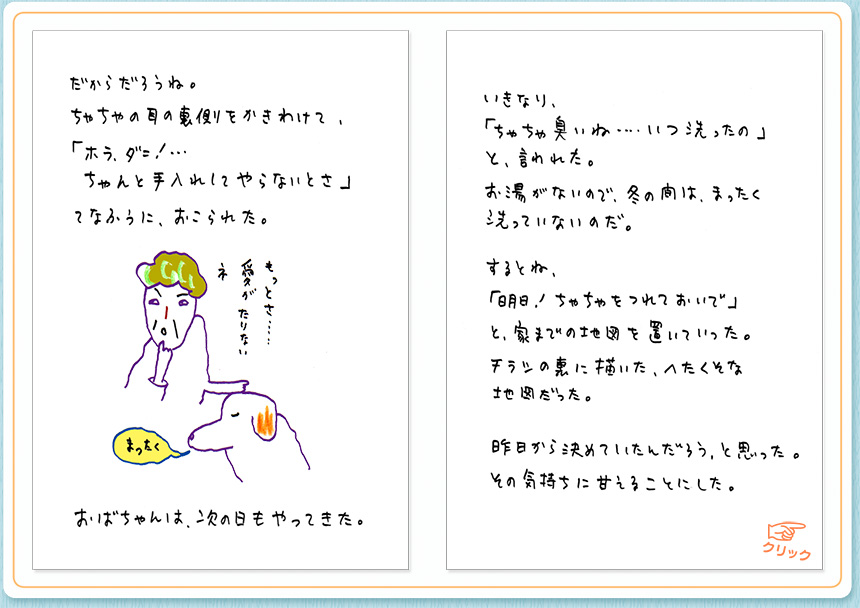 だからだろうね。
ちゃちゃの耳の裏側をかきわけて、
「ホラ、ダニ！…
ちゃんと手入れしてやらないとさ」
てなふうに、おこられた。
もっとさ……
愛がたりない
ネ
まったく
おばちゃんは、次の日もやってきた。
いきなり、
「ちゃちゃ臭いね‥‥いつ洗ったの」
と、言われた。
お湯がないので、冬の間は、まったく
洗っていないのだ。
するとね、
「明日！ちゃちゃをつれておいで」
と、家までの地図を置いていった。
チラシの裏に描いた、へたくそな
地図だった。
昨日から決めていたんだろう、と思った。
その気持ちに甘えることにした。
クリック